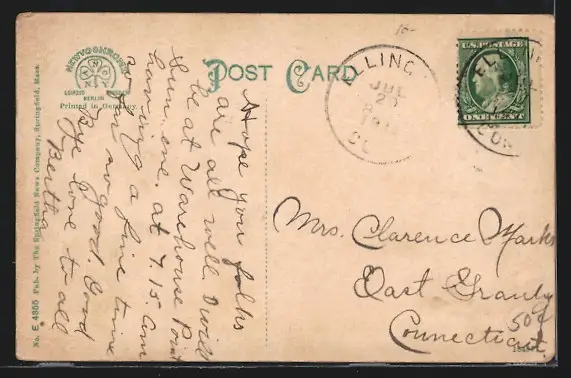 POST CARD
NEWVOCHROME
LEIPZIG DRESDEN
BERLIN
Printed in Germany
No. E 4855 Pub. by The Springfield News Company, Springfield, Mass.
Hope you folks
are all well. I will
be at Warehouse Point
Sun. eve. at 7.15 am
having a fine time
so far so good. Good
Bye love to all
Bertha
ELLING
JUL
20
CO
U.S. POSTAGE
ONE CENT
EL
CON
Mrs. Clarence Marks
East Granby
Connecticut.
50